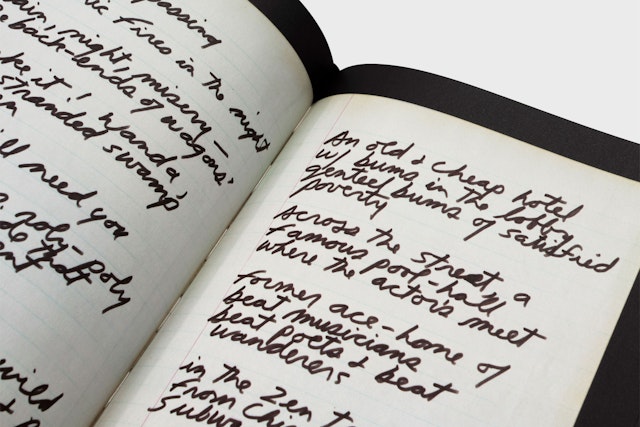 passing
Fires in the night
night, misery—
back-ends of wagons
it! wanda,
stranded swamp
need you
roly-Poly
that
wild
An old & cheap hotel
w/ bums in the lobby
genteel bums of satisfied
poverty
Across the street, a
famous pool-hall
where the actors meet
former ace-home of
beat musicians
beat poets & beat
wanderers
in the Zen t
From Chi
Subw